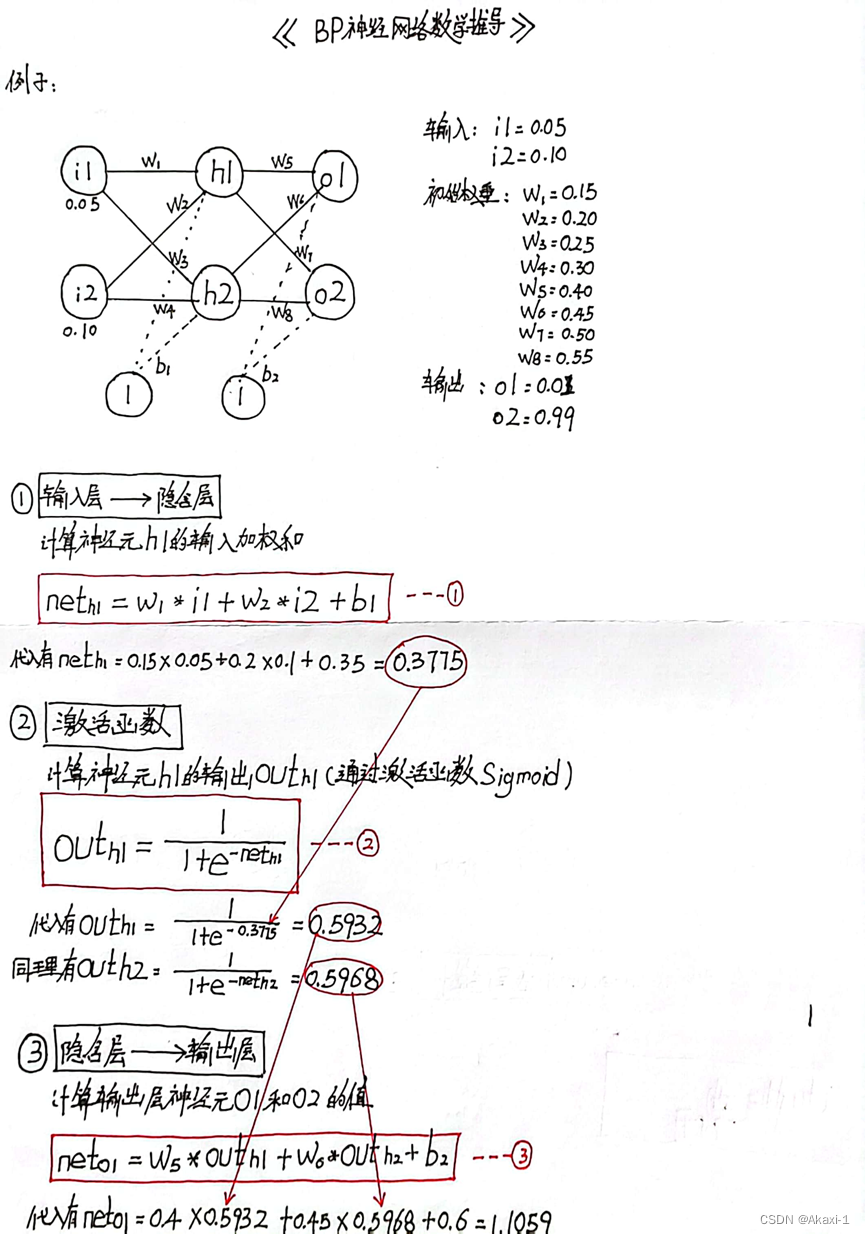 《 BP神经网络数学推导 》
例子：
i1 w₁ h1 w₅ o1
0.05
w₂ w₆
w₃ w₇
i2 w₄ h2 w₈ o2
0.10
b₁ b₂
1 1
输入：i1=0.05
i2=0.10
初始权重：w₁=0.15
w₂=0.20
w₃=0.25
w₄=0.30
w₅=0.40
w₆=0.45
w₇=0.50
w₈=0.55
输出：o1=0.01
o2=0.99
① 输入层 → 隐含层
计算神经元h1的输入加权和
net_h1 = w₁*i1+w₂*i2+b1 ---①
代入有net_h1=0.15×0.05+0.2×0.1+0.35=0.3775
② 激活函数
计算神经元h1的输出out_h1(通过激活函数Sigmoid)
out_h1 = 1/(1+e^(-net_h1)) ---②
代入有out_h1 = 1/(1+e^(-0.3775)) = 0.5932
同理有out_h2 = 1/(1+e^(-net_h2)) = 0.5968
1
③ 隐含层 → 输出层
计算输出层神经元O1和O2的值
net_o1 = w₅*out_h1+w₆*out_h2+b₂ ---③
代入有net_o1=0.4×0.5932+0.45×0.5968+0.6=1.1059
CSDN @Akaxi-1